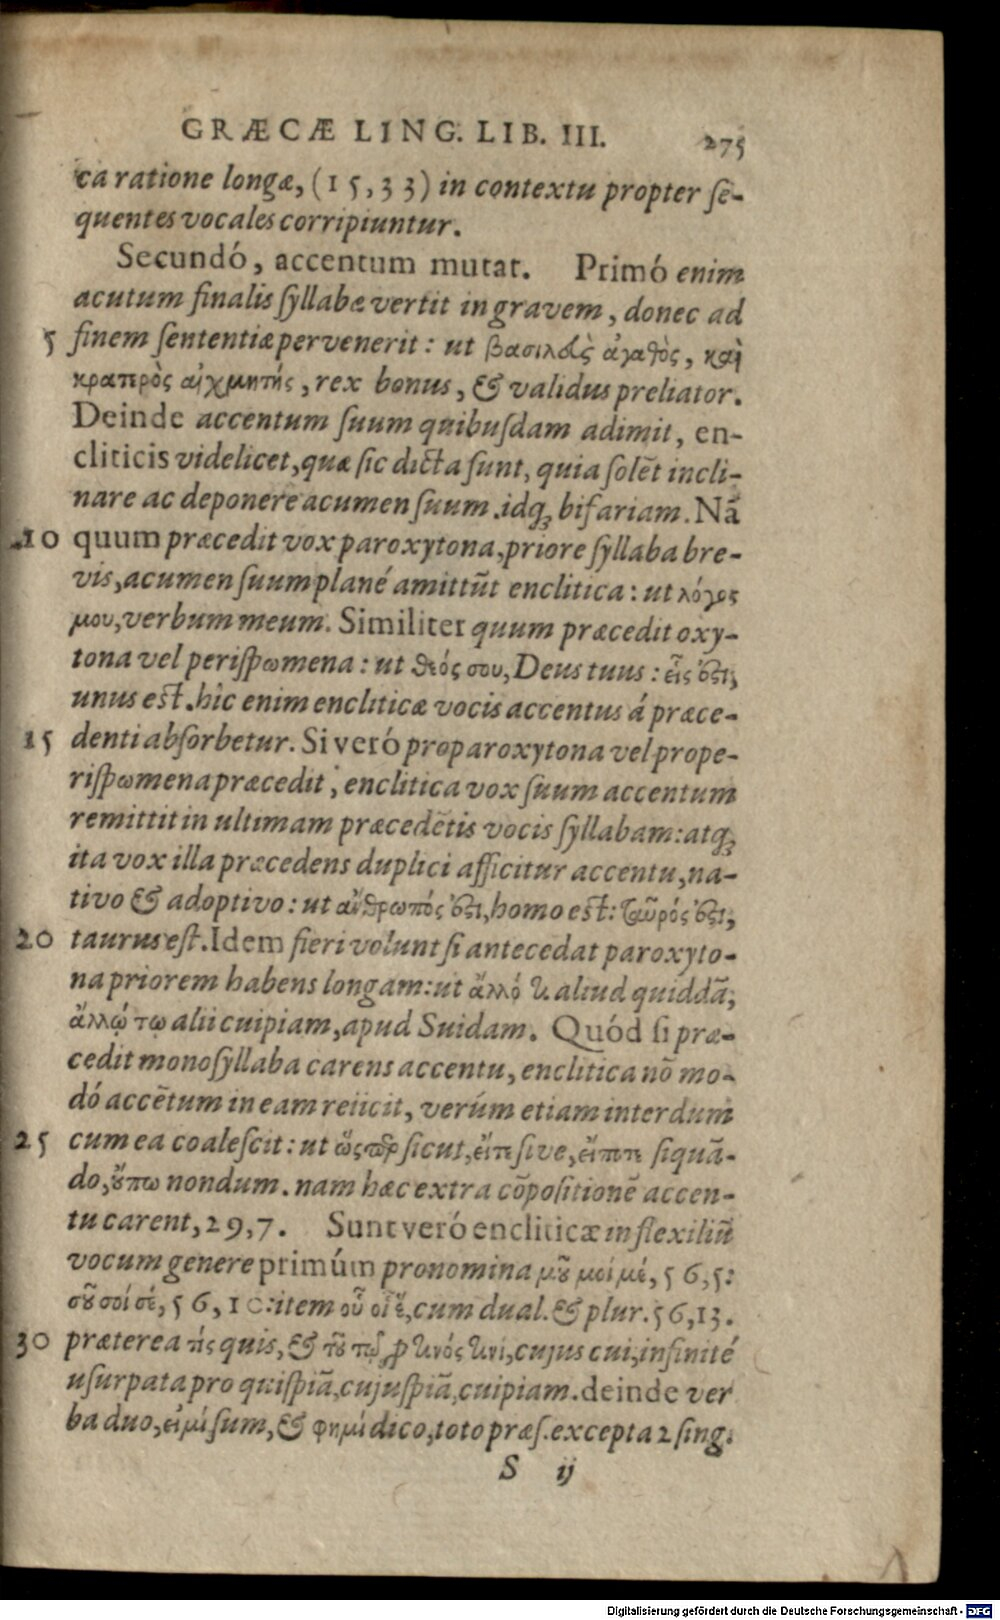 GRÆCÆ LING. LIB. III. 275
ca ratione longæ, (15,33) in contextu propter se-
quentes vocales corripiuntur.
Secundó, accentum mutat. Primó enim
acutum finalis syllabæ vertit in gravem, donec ad
5 finem sententiæ pervenerit: ut βασιλεὺς ἀγαθὸς, καὶ
κρατερὸς αἰχμητής, rex bonus, & validus preliator.
Deinde accentum suum quibusdam adimit, en-
cliticis videlicet, quæ sic dicta sunt, quia solẽt incli-
nare ac deponere acumen suum. idq; bifariam. Nã
10 quum præcedit vox paroxytona, priore syllaba bre-
vis, acumen suum plané amittũt enclitica: ut λόγος
μου, verbum meum. Similiter quum præcedit oxy-
tona vel perispωmena: ut θεός σου, Deus tuus: εἷς ἐστι,
unus est. hîc enim encliticæ vocis accentus á præce-
15 denti absorbetur. Si veró proparoxytona vel prope-
rispωmena præcedit, enclitica vox suum accentum
remittit in ultimam præcedẽtis vocis syllabam: atq;
ita vox illa præcedens duplici afficitur accentu, na-
tivo & adoptivo: ut ἄνθρωπός ἐστι, homo est: ταῦρός ἐστι,
20 taurus est. Idem fieri volunt si antecedat paroxyto-
na priorem habens longam: ut ἄλλό τι aliud quiddã,
ἄλλῳ τω alii cuipiam, apud Suidam. Quód si præ-
cedit monosyllaba carens accentu, enclitica nõ mo-
dó accẽtum in eam reiicit, verúm etiam interdum
25 cum ea coalescit: ut ὥσπερ sicut, εἴτε sive, εἴποτε siquã-
do, οὔπω nondum. nam hæc extra cõpositionẽ accen-
tu carent, 29,7. Sunt veró encliticæ inflexiliũ
vocum genere primúm pronomina μοῦ μοί μέ, 56,5:
σοῦ σοί σέ, 56,10: item οὗ οἷ ἕ, cum dual. & plur. 56,13.
30 præterea τὶς quis, & τοῦ τῷ pro τινός τινί, cujus cui, infinité
usurpata pro quispiã, cujuspiã, cuipiam. deinde ver
ba duo, εἰμί sum, & φημί dico, toto præs. excepta 2 sing.
S ij
Digitalisierung gefördert durch die Deutsche Forschungsgemeinschaft - DFG